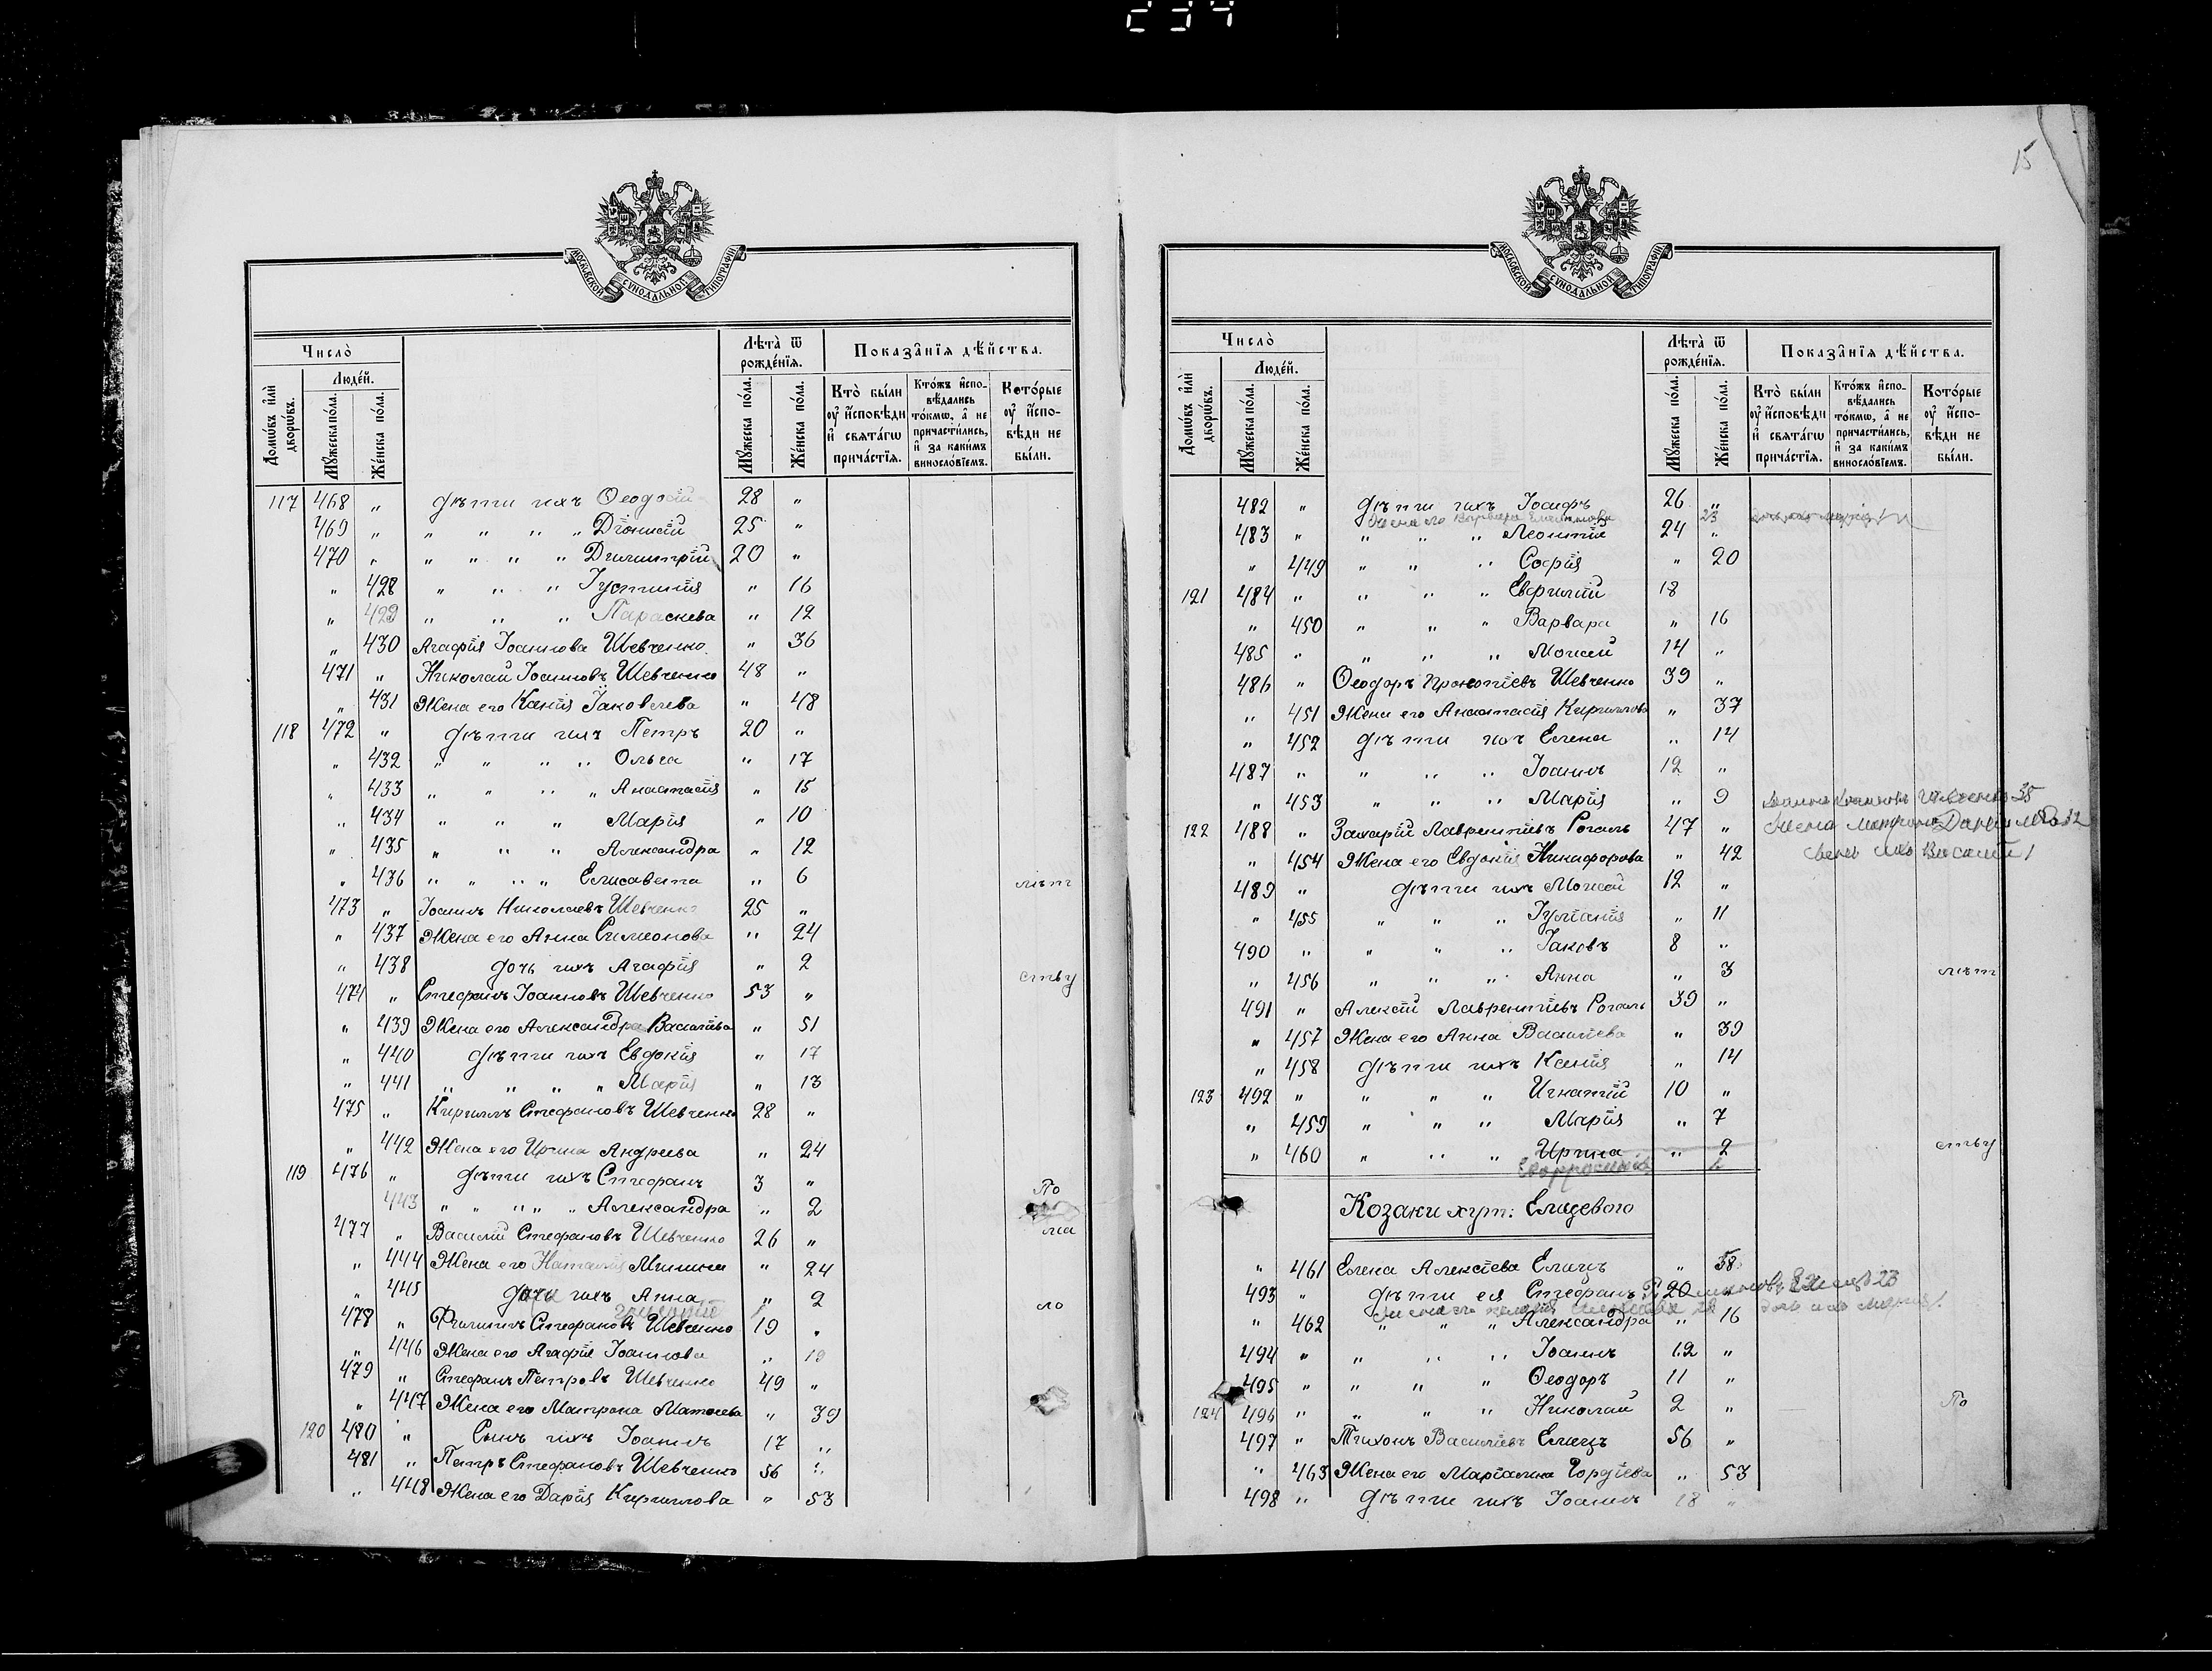 234
МОСКОВСКОЙ СѴНОДАЛЬНОЙ ТИПОГРАФІИ
Число̀
Лѣта̀ ѿ рожде́нїѧ.
Показа̂нїѧ дѣ́йства.
Домѡ́въ и҆лѝ дворѡ́въ.
Люде́й.
Мꙋ́жеска по́ла.
Же́нска по́ла.
Мꙋ́жеска по́ла.
Же́нска по́ла.
Кто̀ бы́ли ᲂу҆ и҆́сповѣди и҆ свѧта́гѡ прича́стїѧ.
Кто́жъ и҆спо-вѣ́дались то́кмѡ, а҆ не причасти́лись, и҆ за каки́мъ виносло́вїемъ.
Кото́рые ᲂу҆ и҆́спо-вѣди не бы́ли.
117 468 " дѣти ихъ Ѳеодосій 28 "
469 " " " " " Діонисій 25 "
470 " " " " " Димитрій 20 "
" 428 " " " Іустинія " 16
" 429 " " " Параскева " 12
" 430 Агафія Іоаннова Шевченко " 36
471 " Николай Іоанновъ Шевченко 48 "
" 431 Жена его Ксенія Іаковлева " 48
118 472 " дѣти ихъ Петръ 20 "
" 432 " " " " Ольга " 17
" 433 " " " " Анастасія " 15
" 434 " " " Марія " 10
" 435 " " " Александра " 12
" 436 " " " " Елисавета " 6 лѣт
473 " Іоаннъ Николаевъ Шевченко 25 "
" 437 Жена его Анна Симеонова " 24
" 438 дочь ихъ Агафія " 2 ству
474 " Стефанъ Іоанновъ Шевченко 53 "
" 439 Жена его Александра Василіева " 51
" 440 дѣти ихъ Евдокія " 17
" 441 " " " " Марія " 13
475 " Кириллъ Стефановъ Шевченко 28 "
" 442 Жена его Ирина Андреева " 24
119 476 " дѣти ихъ Стефанъ 3 " По
443 " " " " " Александра " 2
477 " Василій Стефановъ Шевченко 26 " ма
" 444 Жена его Наталія Минина " 24
" 445 дочь ихъ Анна " 2 ло
478 " Филиппъ Стефановъ Шевченко 19 "
" 446 Жена его Агафія Іоаннова " 19
479 " Стефанъ Петровъ Шевченко 49 "
" 447 Жена его Матрона Матѳеева " 39
120 480 " Сынъ ихъ Іоаннъ 17 "
481 " Петръ Стефановъ Шевченко 56 "
" 448 Жена его Дарія Кириллова " 53
15
МОСКОВСКОЙ СѴНОДАЛЬНОЙ ТИПОГРАФІИ
Число̀
Лѣта̀ ѿ рожде́нїѧ.
Показа̂нїѧ дѣ́йства.
Домѡ́въ и҆лѝ дворѡ́въ.
Люде́й.
Мꙋ́жеска по́ла.
Же́нска по́ла.
Мꙋ́жеска по́ла.
Же́нска по́ла.
Кто̀ бы́ли ᲂу҆ и҆́сповѣди и҆ свѧта́гѡ прича́стїѧ.
Кто́жъ и҆спо-вѣ́дались то́кмѡ, а҆ не причасти́лись, и҆ за каки́мъ виносло́вїемъ.
Кото́рые ᲂу҆ и҆́спо-вѣди не бы́ли.
482 " дѣти ихъ Іосифъ 26 "
Жена его Варвара 23
483 " " " " Леонтій 24 "
" 449 " " " Софія " 20
121 484 " " " " Евфимій 18
" 450 " " " Варвара " 16
485 " " " " Моисей 14 "
486 " Ѳеодоръ Прокопіевъ Шевченко 39 "
" 451 Жена его Анастасія Кириллова " 37
" 452 дѣти ихъ Елена " 14
487 " " " " Іоаннъ 12 "
" 453 " " " Марія " 9 Шевченко 35
122 488 " Захарій Лаврентіевъ Рогаль 47 " Жена Матрона 32
" 454 Жена его Евдокія Никифорова " 42 Василій 1
489 " дѣти ихъ Моисей 12 "
" 455 " " " Іуліанія " 11
490 " " " " Іаковъ 8 "
" 456 " " " Анна " 3 лѣт
491 " Алексій Лаврентіевъ Рогаль 39 "
" 457 Жена его Анна Василіева " 39
" 458 дѣти ихъ Ксенія " 14
123 492 " " " " Игнатій 10 "
" 459 " " " Марія " 7
" 460 " " " Ирина " 2 ству
Козаки хут: Елицевого
" 461 Елена Алексіева Елицъ " 58
493 " дѣти ея Стефанъ 20 23
" 462 " " " Александра " 16
494 " " " " Іоаннъ 12 "
495 " " " " Ѳеодоръ 11 "
124 496 " " " " Николай 2 " По
497 " Тихонъ Василіевъ Елицъ 56 "
" 463 Жена его Маріамна Гордіева " 53
498 " дѣти ихъ Іоаннъ 18 "